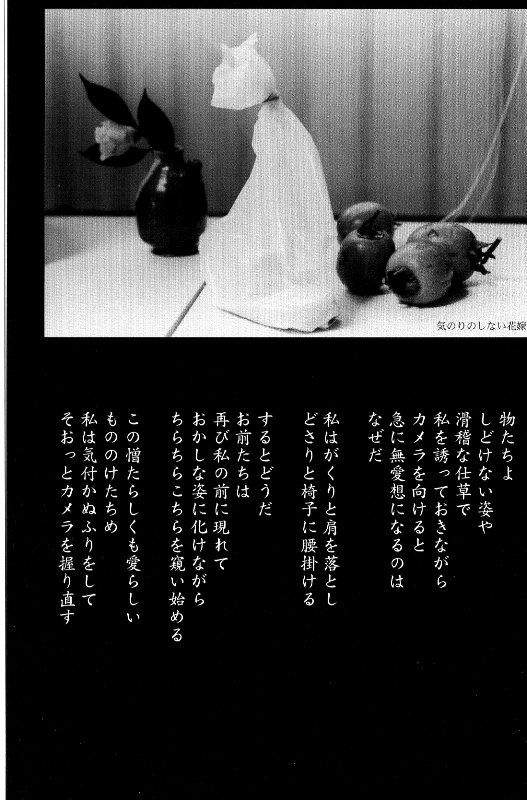 気のりのしない花嫁
物たちよ
しどけない姿や
滑稽な仕草で
私を誘っておきながら
カメラを向けると
急に無愛想になるのは
なぜだ
私はがくりと肩を落とし
どさりと椅子に腰掛ける
するとどうだ
お前たちは
再び私の前に現れて
おかしな姿に化けながら
ちらちらこちらを窺い始める
この憎たらしくも愛らしい
もののけたちめ
私は気付かぬふりをして
そおっとカメラを握り直す